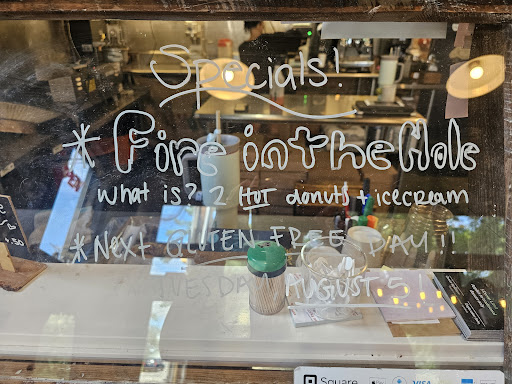 Specials!
* Fire in the Hole
What is? 2 HOT donuts + icecream
*Next GLUTEN FREE DAY!!
AUGUST 5!
Square
VISA